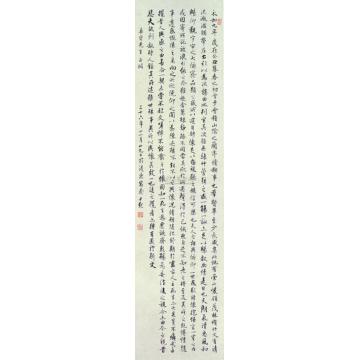 永和九年歲在癸丑暮春之初會于會稽山陰之蘭亭脩稧事也羣賢畢至少長咸集此地有崇山峻領茂林脩竹又有清
流激湍暎帶左右引以為流觴曲水列坐其次雖無絲竹管弦之盛一觴一詠亦足以暢敘幽情是日也天朗氣清惠風和
暢仰觀宇宙之大俯察品類之盛所以遊目騁懷足以極視聽之娛信可樂也夫人之相與俯仰一世或取諸懷抱悟言一室之內
或因寄所託放浪形骸之外雖趣舍萬殊靜躁不同當其欣於所遇暫得於己快然自足不知老之將至及其所之既惓情隨
事遷感慨係之矣向之所欣俛仰之間以為陳迹猶不能不以之興懷況脩短隨化終期於盡古人云死生亦大矣豈不痛哉每
攬昔人興感之由若合一契未嘗不臨文嗟悼不能喻之於懷固知一死生為虛誕齊彭殤為妄作後之視今亦由今之視昔
悲夫故列敘時人錄其所述雖世殊事異所以興懷其致一也後之攬者亦將有感於斯文
三十六年十一月
先生正